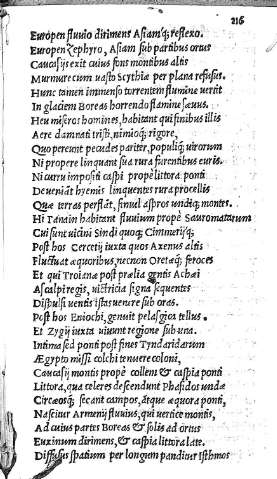 216
Europen fluuio dirimens Asiamq; reflexo.
Europen Zephyro, Asiam sub partibus ortus
Caucasijs exit cuius fons montibus altis
Murmure cum uasto Scythiæ per plana refusus.
Hunc tamen immenso torrentem flumine uertit
In glaciem Boreas horrendo flamine sæuus.
Heu miseros homines, habitant qui finibus illis
Aere damnati tristi, nimioq; rigore,
Quo pereunt pecudes pariter, populiq; uirorum
Ni propere linquant sua rura furentibus euris.
Ni curru impositi caspi prope littora ponti
Deueniant hyemis linquentes rura procellis
Quæ terras perflant, simul aspros undiq; montes.
Hi Tanain habitant fluuium propè Sauromatarum
Cui sunt uicini Sindi quoq; Cimmerijq;
Post hos Cercetij iuxta quos Axenus altis
Fluctuat æquoribus, necnon Oretæq; feroces
Et qui Troianæ post prælia gentis Achæi
Ascalpi regis, uictricia signa sequentes
Dispulsi uentis istas uenere sub oras.
Post hos Eniochi, genuit pelasgica tellus.
Et Zygij iuxta uiuunt regione sub una.
Intima sed ponti post fines Tyndaridarum
Ægypto missi colchi tenuere coloni,
Caucasij montis propè collem & caspia ponti
Littora, qua celeres descendunt Phasidos undæ
Circæosq; secant campos, atque æquora ponti,
Nascitur Armenij fluuius, qui uertice montis,
Ad cuius partes Boreas & solis ad ortus
Euxinum dirimens, & caspia littora late.
Diffusus spatium per longum panditur Isthmos